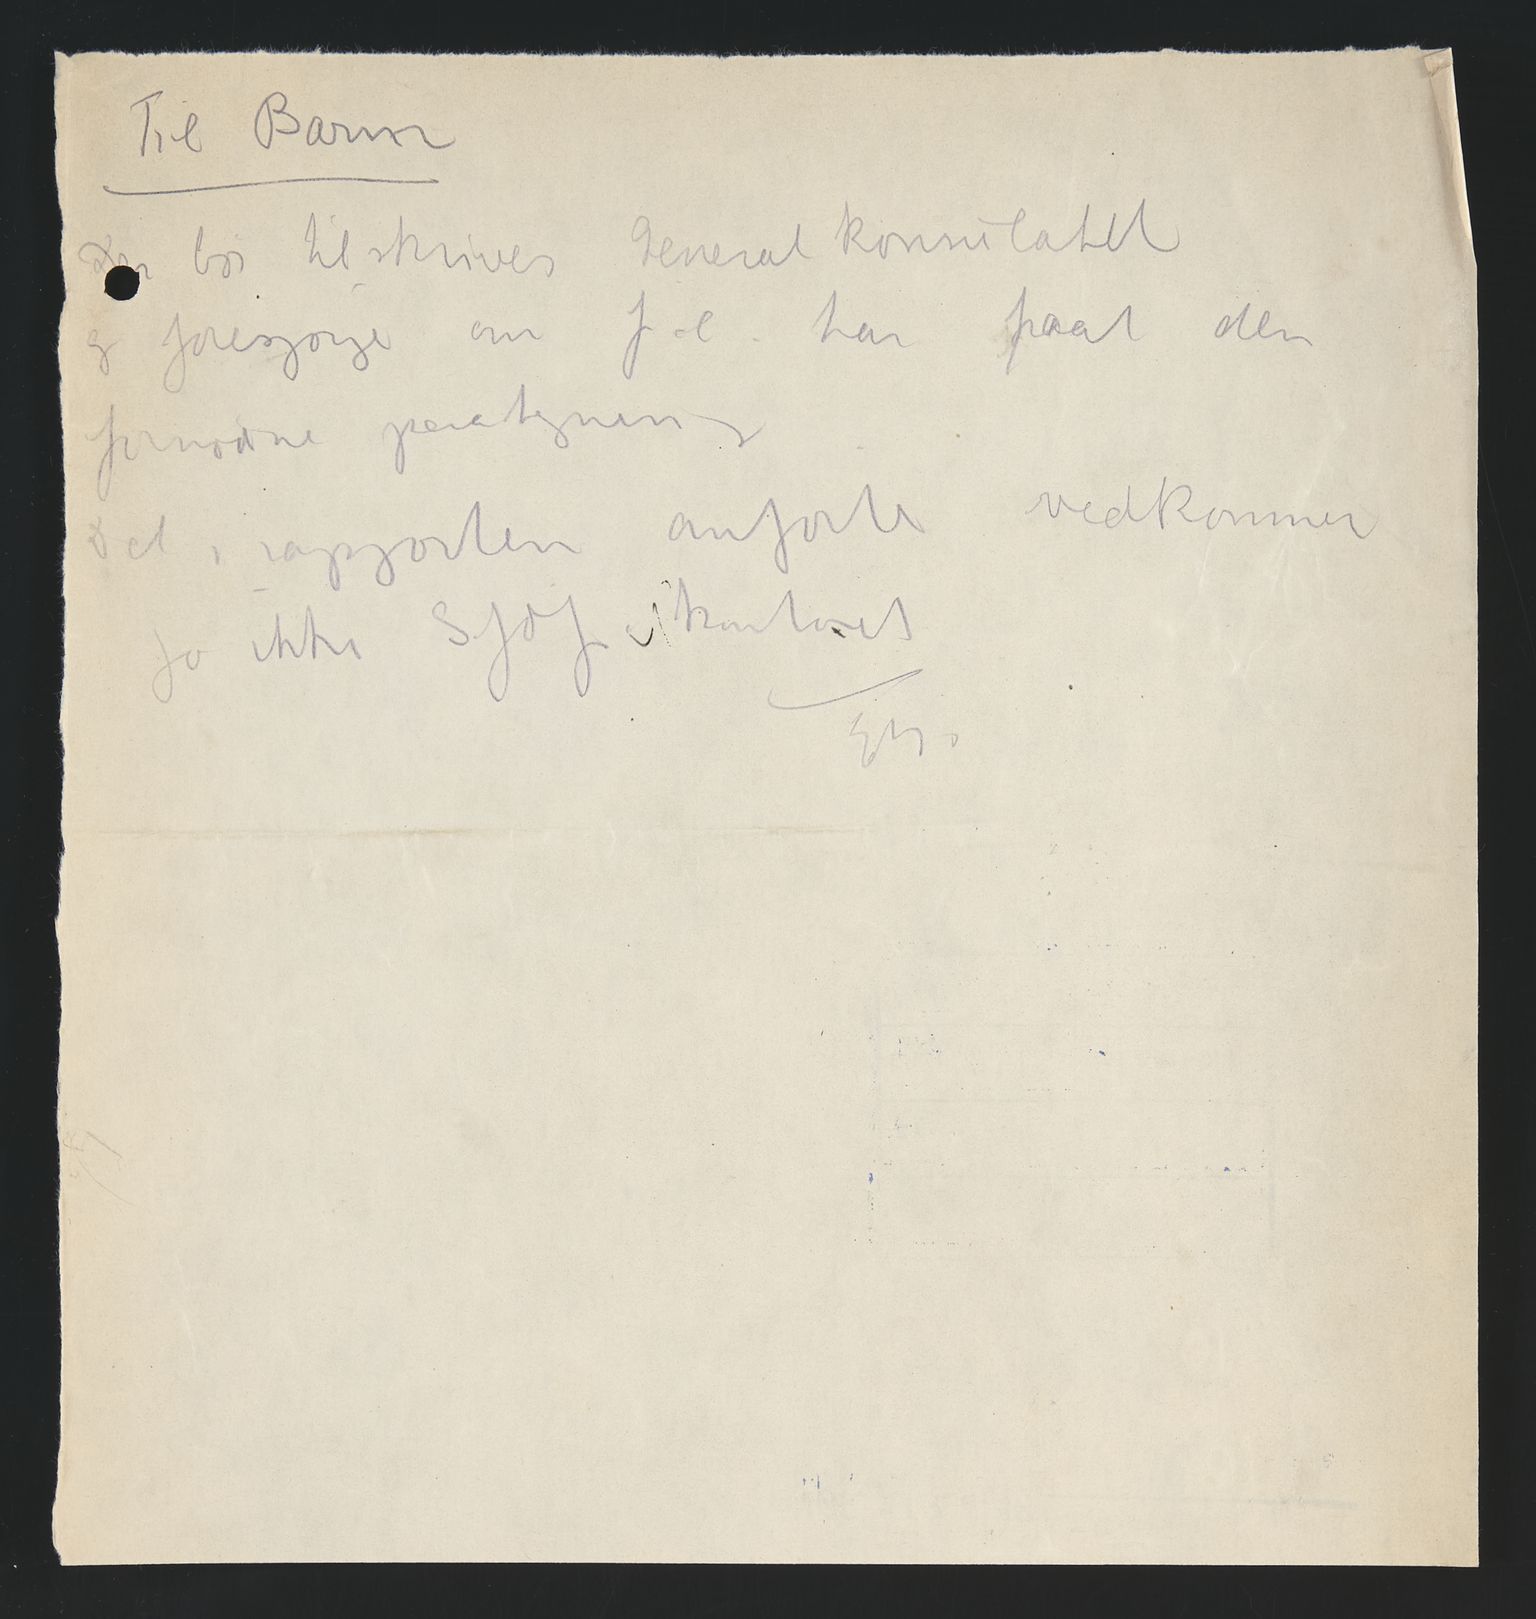 Til
Der bør tilskrives Generalkonsulatet
og forespørge om f. l. har faaet den
fornødne paategning
Det i rapporten anførte vedkommer
jo ikke kontoret